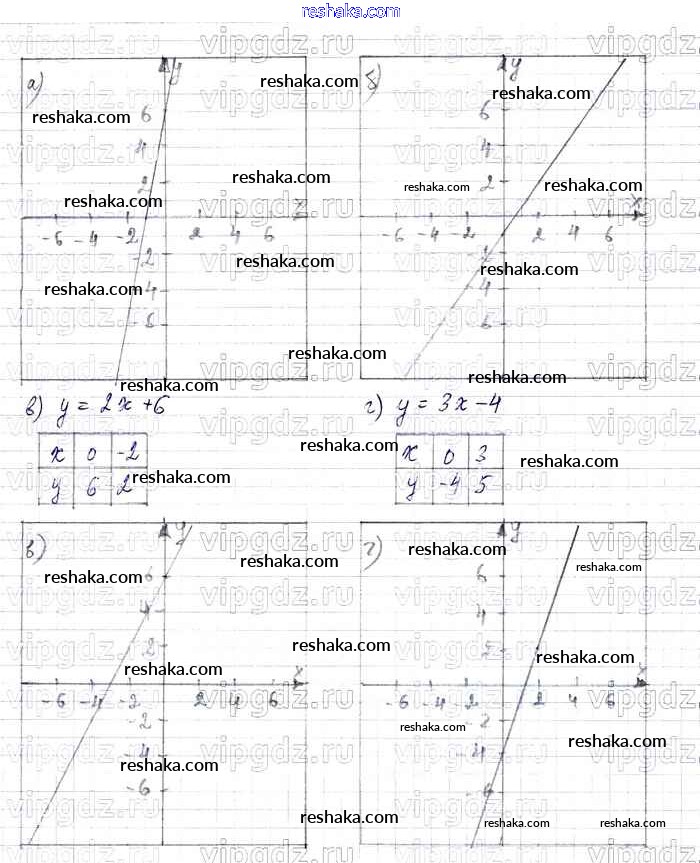 reshaka.com
vipgdz.ru vipgdz.ru vipgdz.ru
а) y reshaka.com б) y
reshaka.com reshaka.com
6 6
4 4
2 reshaka.com 2 reshaka.com reshaka.com
reshaka.com x x
-6 -4 -2 2 4 6 -6 -4 -2 2 4 6
-2 reshaka.com reshaka.com
reshaka.com -4 -4
-6 -6
reshaka.com
reshaka.com reshaka.com
в) y = 2x + 6 г) y = 3x - 4
x 0 -2 reshaka.com x 0 3 reshaka.com
y 6 2 reshaka.com y -4 5
в) y reshaka.com г) y
reshaka.com 6 reshaka.com 6 reshaka.com
4 4
2 reshaka.com 2 reshaka.com
reshaka.com x x
-6 -4 -2 2 4 6 -6 -4 -2 2 4 6
-2 reshaka.com -2 reshaka.com
reshaka.com -4 -4
-6 -6
reshaka.com reshaka.com reshaka.com